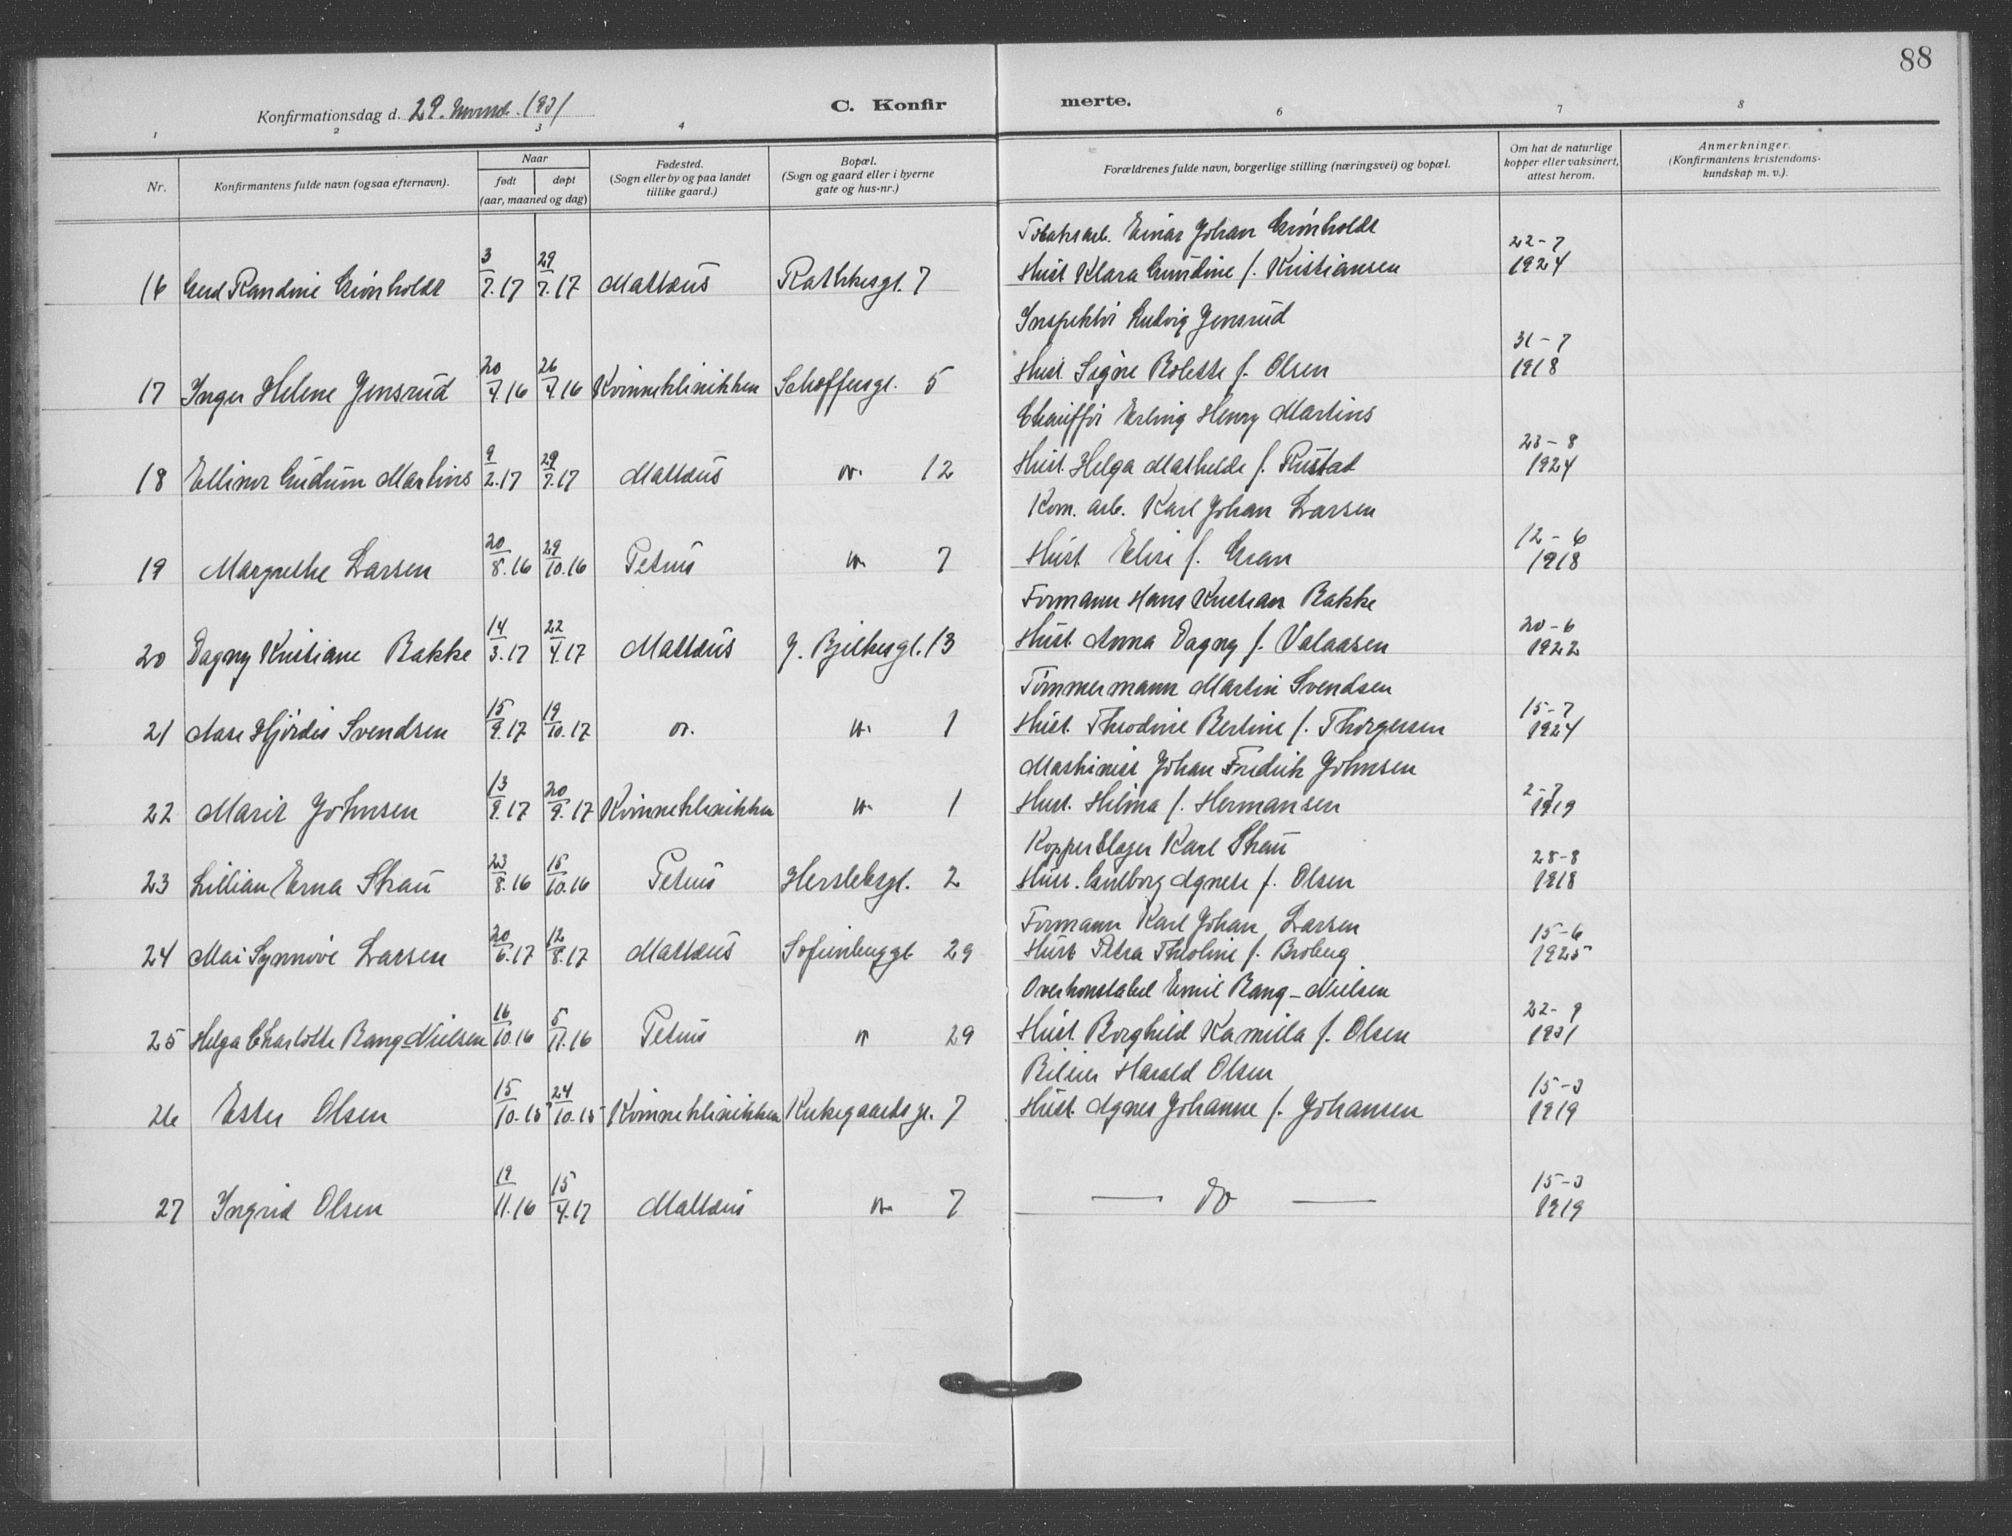 88
Konfirmationsdag d. 29. novmd. 1931
C. Konfirmerte.
1 2 3 4 6 7 8
Nr. Konfirmantens fulde navn (ogsaa efternavn). Naar født døpt (aar, maaned og dag) Fødested. (Sogn eller by og paa landet tillike gaard.) Bopæl. (Sogn og gaard eller i byerne gate og hus-nr.) Forældrenes fulde navn, borgerlige stilling (næringsvei) og bopæl. Om hat de naturlige kopper eller vaksinert, attest herom. Anmerkninger. (Konfirmantens kristendomskundskap m. v.).
Tobaksarb. Einar Johan Grönholdt
16 Gerd Randine Grönholdt 3/7.17 29/7.17 Mattæus Rathkesgt. 7 Hust. Klara Gundine f. Kristiansen 22-7 1924
Inspektör Ludvig Jensrud
17 Inger Helene Jensrud 20/7.16 26/7.16 Kvinneklinikken Schoffersgt. 5 Hust. Signe Bolette f. Olsen 31-7 1918
Chaufför Erling Henry Martins
18 Ellinor Gudrun Martins 9/2.17 29/7.17 Mattæus " 12 Hust. Helga Mathilde f. Rustad 23-8 1924
Kom. arb. Karl Johan Larsen
19 Margrethe Larsen 20/8.16 29/10.16 Petrus " 7 Hust Elise f. Gran 12-6 1918
Formann Hans Kristian Bakke
20 Dagny Kristiane Bakke 14/3.17 22/4.17 Mattæus J. Bjelkesgt. 13 Hust. Anna Dagny f. Valaasen 20-6 1922
Tömmermann Martin Svendsen
21 Aase Hjördis Svendsen 15/9.17 19/10.17 " " 1 Hust. Theodine Bertine f. Thorgersen 15-7 1924
Maskinist Johan Fredrik Johnsen
22 Marit Johnsen 13/9.17 20/9.17 Kvinneklinikken " 1 Hust. Hilma f. Hermansen 2-7 1919
Kopperslager Karl Skau
23 Lillian Erna Skau 23/8.16 15/10.16 Petrus Herslebsgt. 2 Hust. Gulborg Agnete f. Olsen 28-8 1918
Formann Karl Johan Larsen
24 Mai Synnöve Larsen 20/6.17 12/8.17 Mattæus Sofienberggt 29 Hust Petra Theoline f. Broberg 15-6 1925
Overkonstabel Emil Bang-Nielsen
25 Helga Charlotte Bang-Nielsen 16/10.16 5/11.16 Petrus " 29 Hust. Borghild Kamilla f. Olsen 22-9 1931
Bileier Harald Olsen
26 Ester Olsen 15/10.15 24/10.15 Kvinneklinikken Kirkegaardsgt. 7 Hust. Agnes Johanne f. Johansen 15-3 1919
27 Ingrid Olsen 19/11.16 15/4.17 Mattæus " 7 — do — 15-3 1919